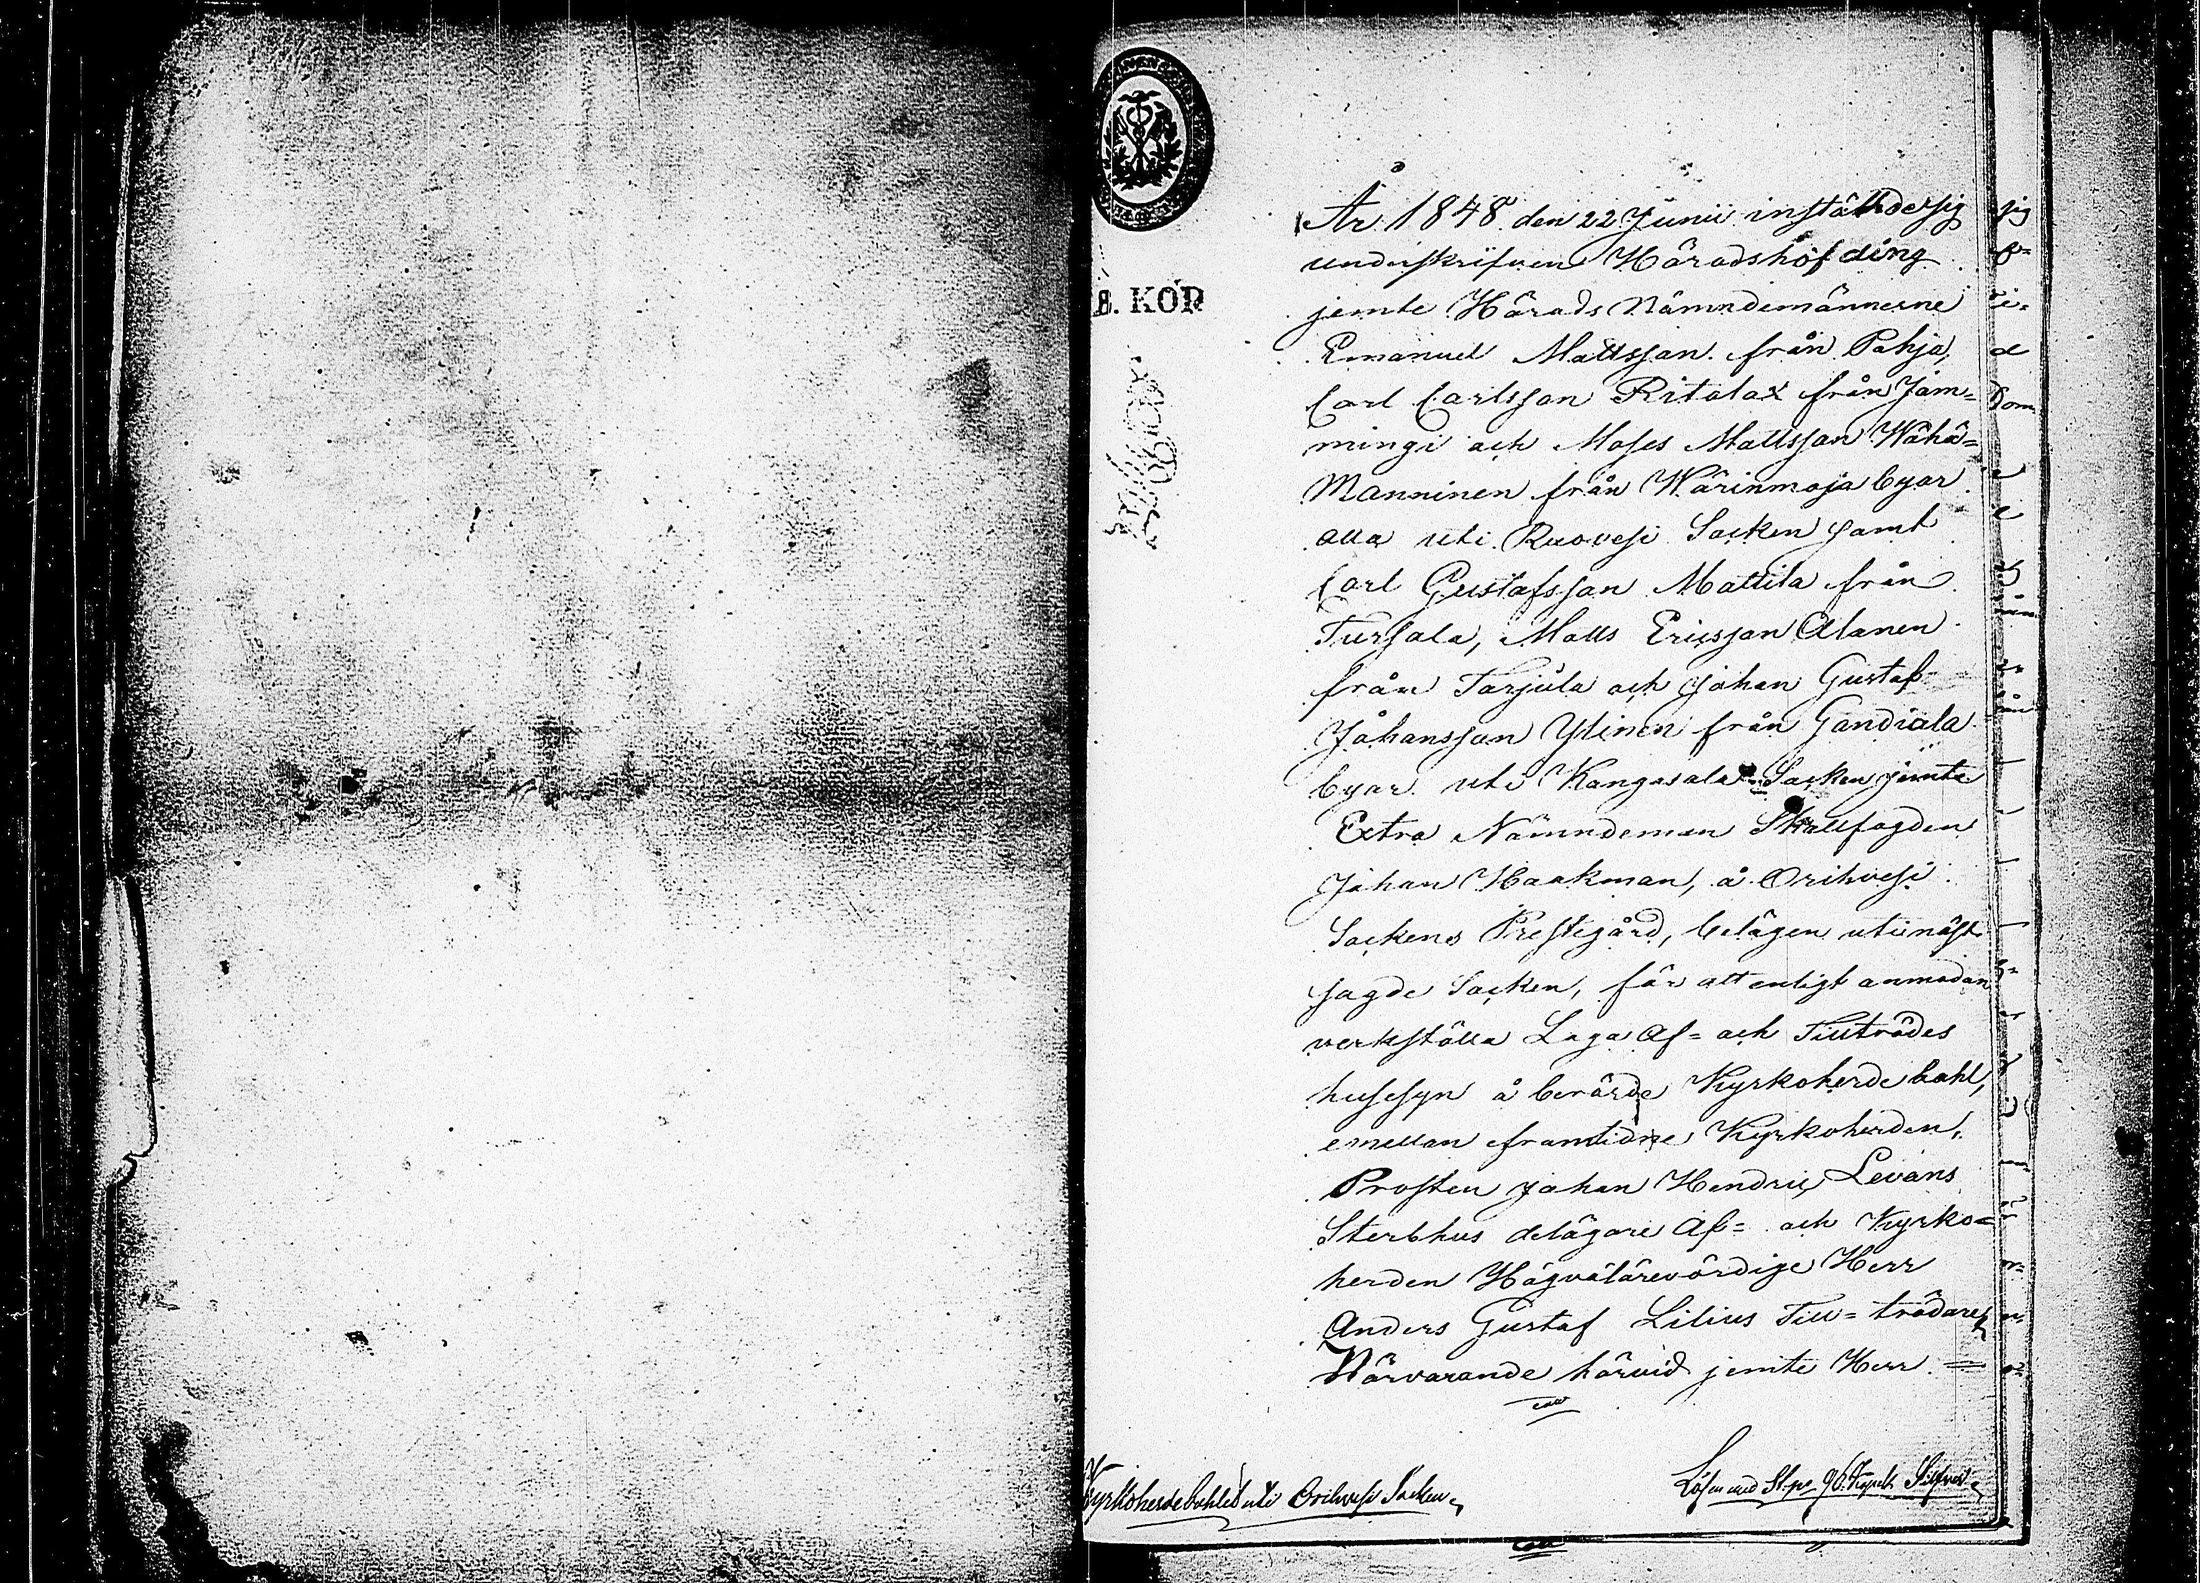 År 1848 den 22 Junii instälde sig
underskrifven Häradshöfding
jemte Härads Nämndemännerne
Emanuel Mattsson från Pohja,
Carl Carlsson Ritalax från Jäm=
mingi och Moses Mattsson Wähä=
Manninen från Wärinmaja byar
alla uti Ruovesi Socken samt
Carl Gustafsson Mattila från
Tursola, Matts Ericsson Alanen
från Tarjula och Johan Gustaf
Johansson Ylinen från Gandiala
byar uti Kangasala Socken jemte
Extra Nämndeman Skallfogden
Johan Haakman, å Orihvesi
Sockens Prestegård, belägen uti näst
sagde Socken, för att enligt anmodan
verkställa Laga Af= och Tillträdes
husesyn å berörde Kyrkoherde bohl,
emellan framlidne Kyrkoherden,
Prosten Johan Hendric Leváns
Sterbhus delägare Af= och Kyrko=
herden Högvälärevördige Herr
Anders Gustaf Lilius Till=trädare,
Närvarande härvid jemte Herr =
8. KOP
Kyrkoherdebohlet uti Orihvesi Socken,
Lösen med St. pr 96 Kopek Silfver